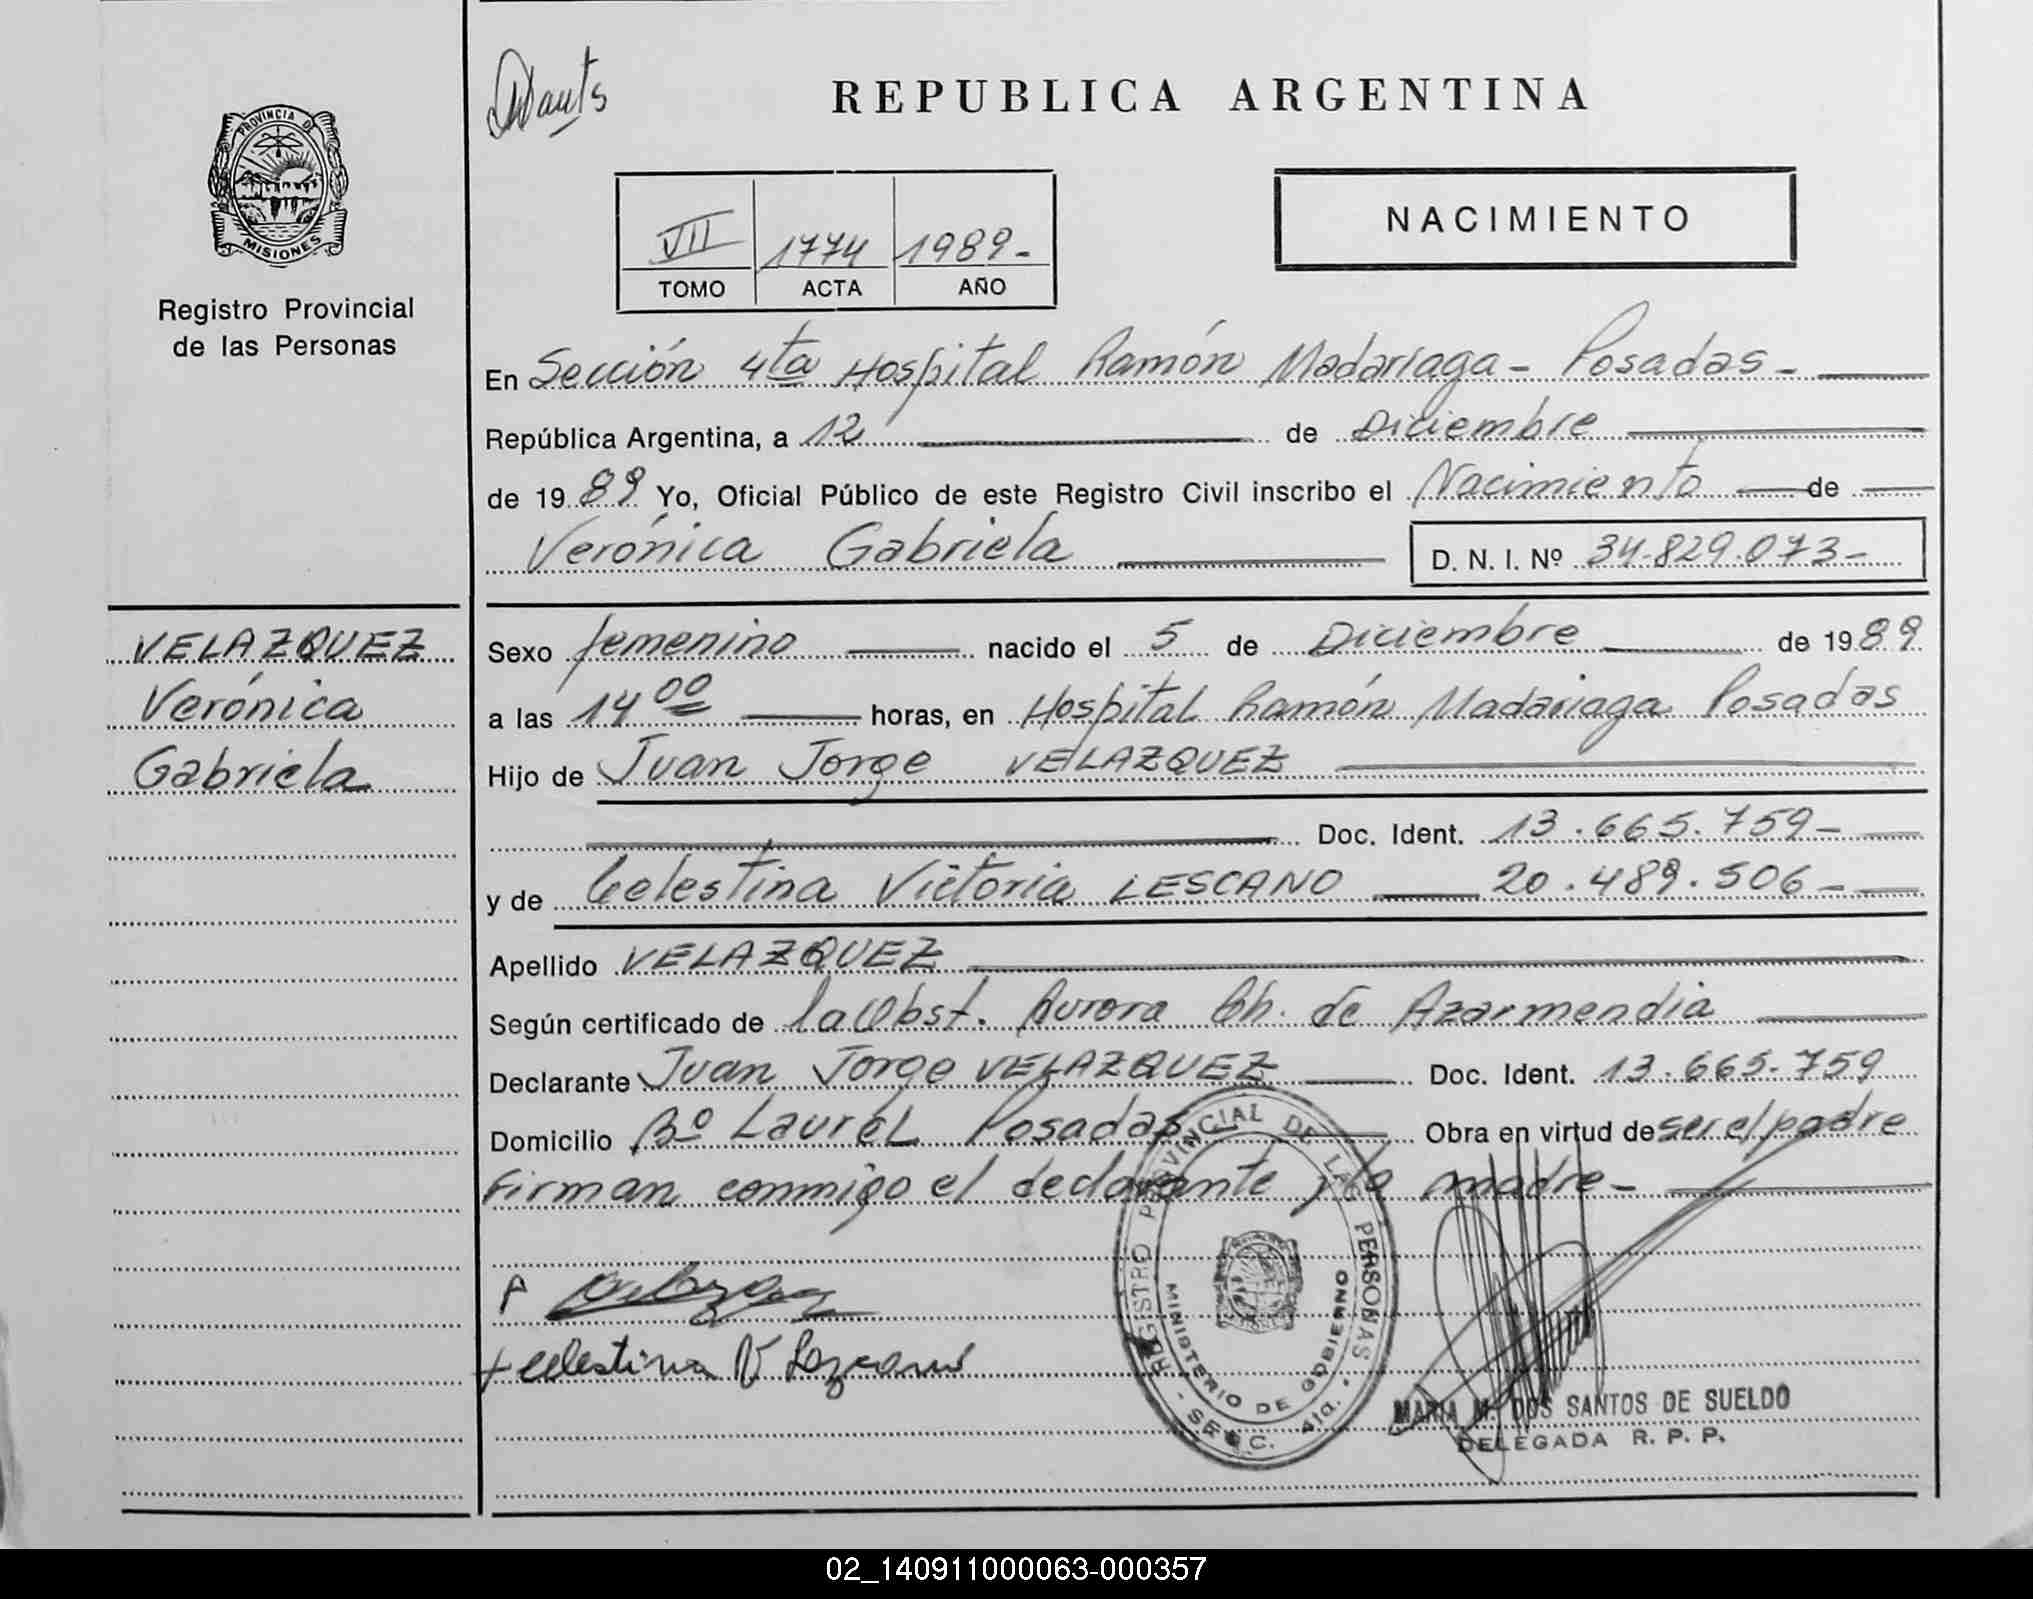 REPUBLICA ARGENTINA
PROVINCIA DE
MISIONES
Registro Provincial
de las Personas
VII 1774 1989-
TOMO ACTA AÑO
NACIMIENTO
En Sección 4ta Hospital Ramón Madariaga - Posadas -
República Argentina, a 12 de Diciembre
de 1989 Yo, Oficial Público de este Registro Civil inscribo el Nacimiento de
Verónica Gabriela D. N. I. Nº 34.829.073-
VELAZQUEZ
Verónica
Gabriela
Sexo femenino nacido el 5 de Diciembre de 1989
a las 14 00 horas, en Hospital Ramón Madariaga Posadas
Hijo de Juan Jorge VELAZQUEZ
Doc. Ident. 13.665.759-
y de Celestina Victoria LESCANO 20.489.506-
Apellido VELAZQUEZ
Según certificado de la Obst. Aurora Ch. de Azarmendia
Declarante Juan Jorge VELAZQUEZ Doc. Ident. 13.665.759
Domicilio Bº Laurel Posadas Obra en virtud de ser el padre
Firman conmigo el declarante y la madre-
Celestina V Lezcano
REGISTRO PROVINCIAL DE LAS PERSONAS
MINISTERIO DE GOBIERNO
- SECC. 4ta. -
MARIA M. DOS SANTOS DE SUELDO
DELEGADA R. P. P.
02_140911000063-000357